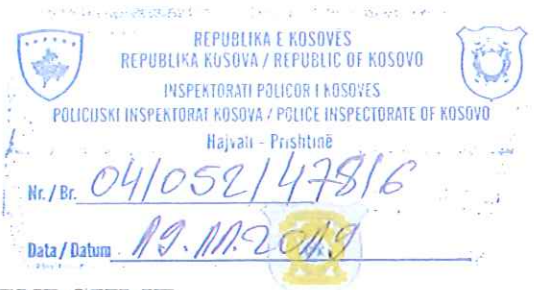 REPUBLIKA E KOSOVËS
REPUBLIKA KOSOVA / REPUBLIC OF KOSOVO
INSPEKTORATI POLICOR I KOSOVËS
POLICIJSKI INSPEKTORAT KOSOVA / POLICE INSPECTORATE OF KOSOVO
Hajvali - Prishtinë
Nr. / Br. 04/052/478/6
Data / Datum 19.11.2019